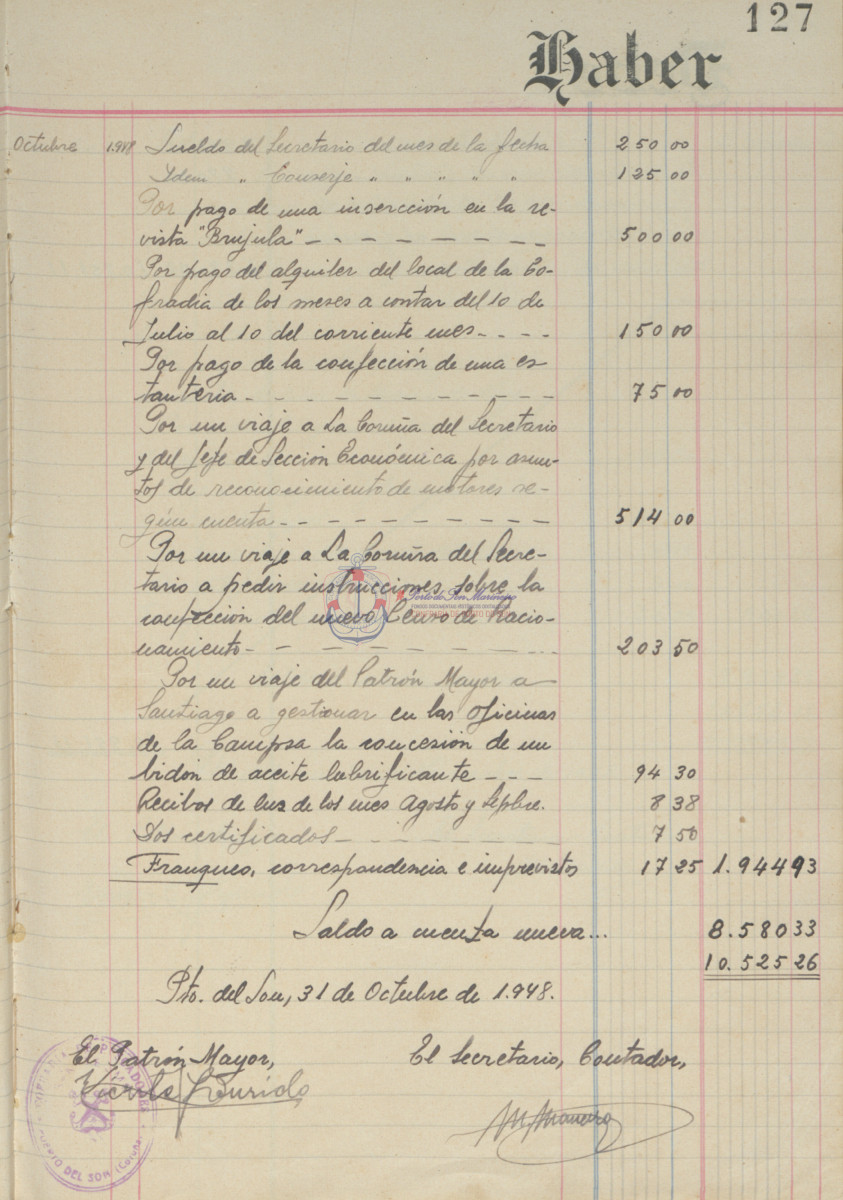 127
Haber
Octubre 1.948 Sueldo del Secretario del mes de la fecha 250 00
Idem " Conserje " " " " " 125 00
Por pago de una insercción en la re-
vista "Brujula" - - - - - - - - 500 00
Por pago del alquiler del local de la Co-
fradia de los meses a contar del 10 de
Julio al 10 del corriente mes - - - - 150 00
Por pago de la confección de una es
tanteria - - - - - - - - - - - 75 00
Por un viaje a La Coruña del Secretario
y del Jefe de Sección Económica por asun-
tos de reconocimiento de motores se-
gún cuenta - - - - - - - - - - 514 00
Por un viaje a La Coruña del Secre-
tario a pedir instrucciones sobre la
confección del nuevo Censo de Racio-
namiento - - - - - - - - ... 203 50
Por un viaje del Patrón Mayor a
Santiago a gestionar en las oficinas
de la Campsa la concesión de un
bidón de aceite lubrificante - - - 94 30
Recibos de luz de los mes Agosto y Sepbre. 8 38
Dos certificados - - - - - - - - 7 50
Franqueo, correspondencia e imprevistos 17 25 1.944 93
Saldo a cuenta nueva... 8.580 33
10.525 26
Pto. del Son, 31 de Octubre de 1.948.
El Patrón Mayor, El Secretario, Contador,
PUERTO DEL SON (Coruña)
Porto do Son Mariñeiro